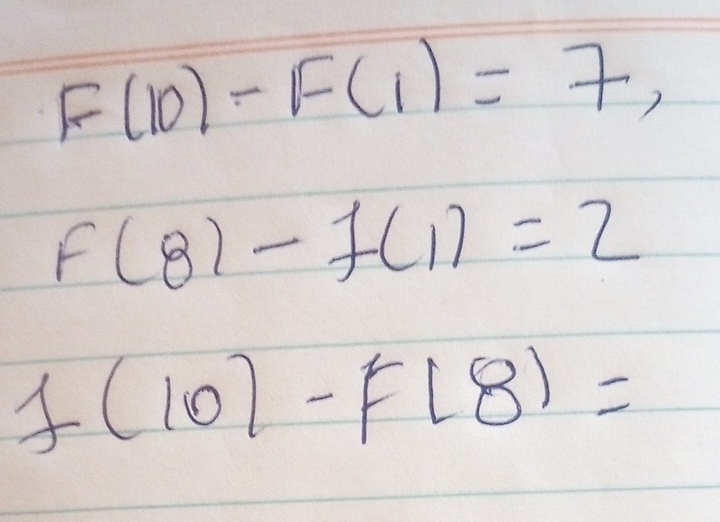 F(10) - F(1) = 7,
F(8) - f(1) = 2
f(10) - F(8) =